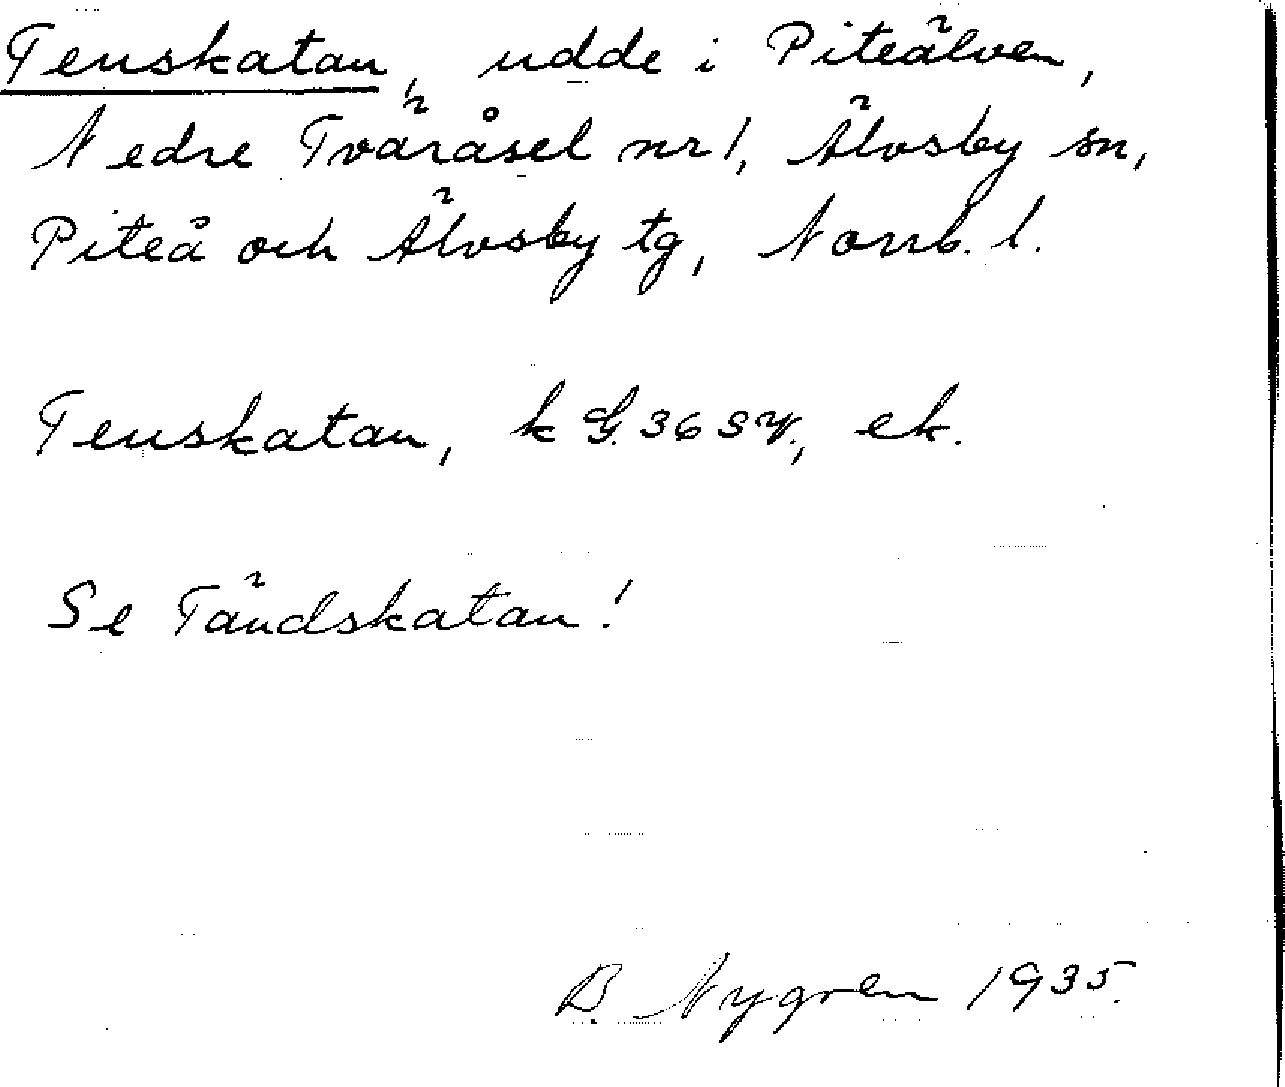 Tenskatan, udde i Piteälven,
Nedre Tväråsel nr 1, Älvsby sn,
Piteå och Älvsby tg, Norrb. l.
Tenskatan, k G. 36 SV., ek.
Se Tändskatan!
B. Nygren 1935.